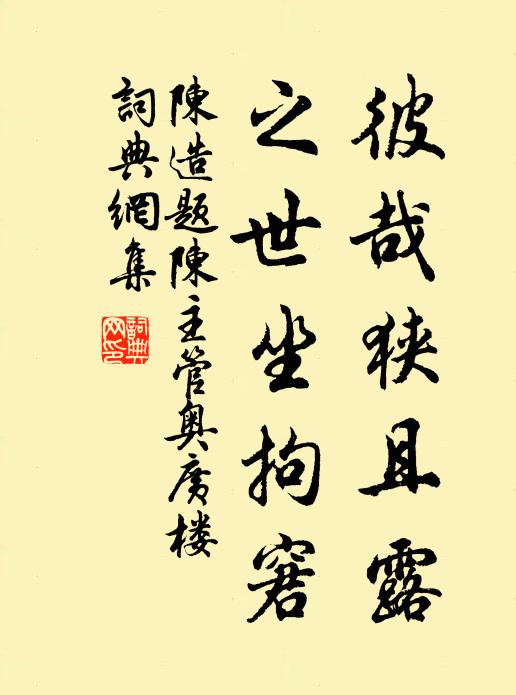 彼哉狹且露
之世坐拘窘
陳造題陳主管奥廣楼
詞典網集
詞典网印